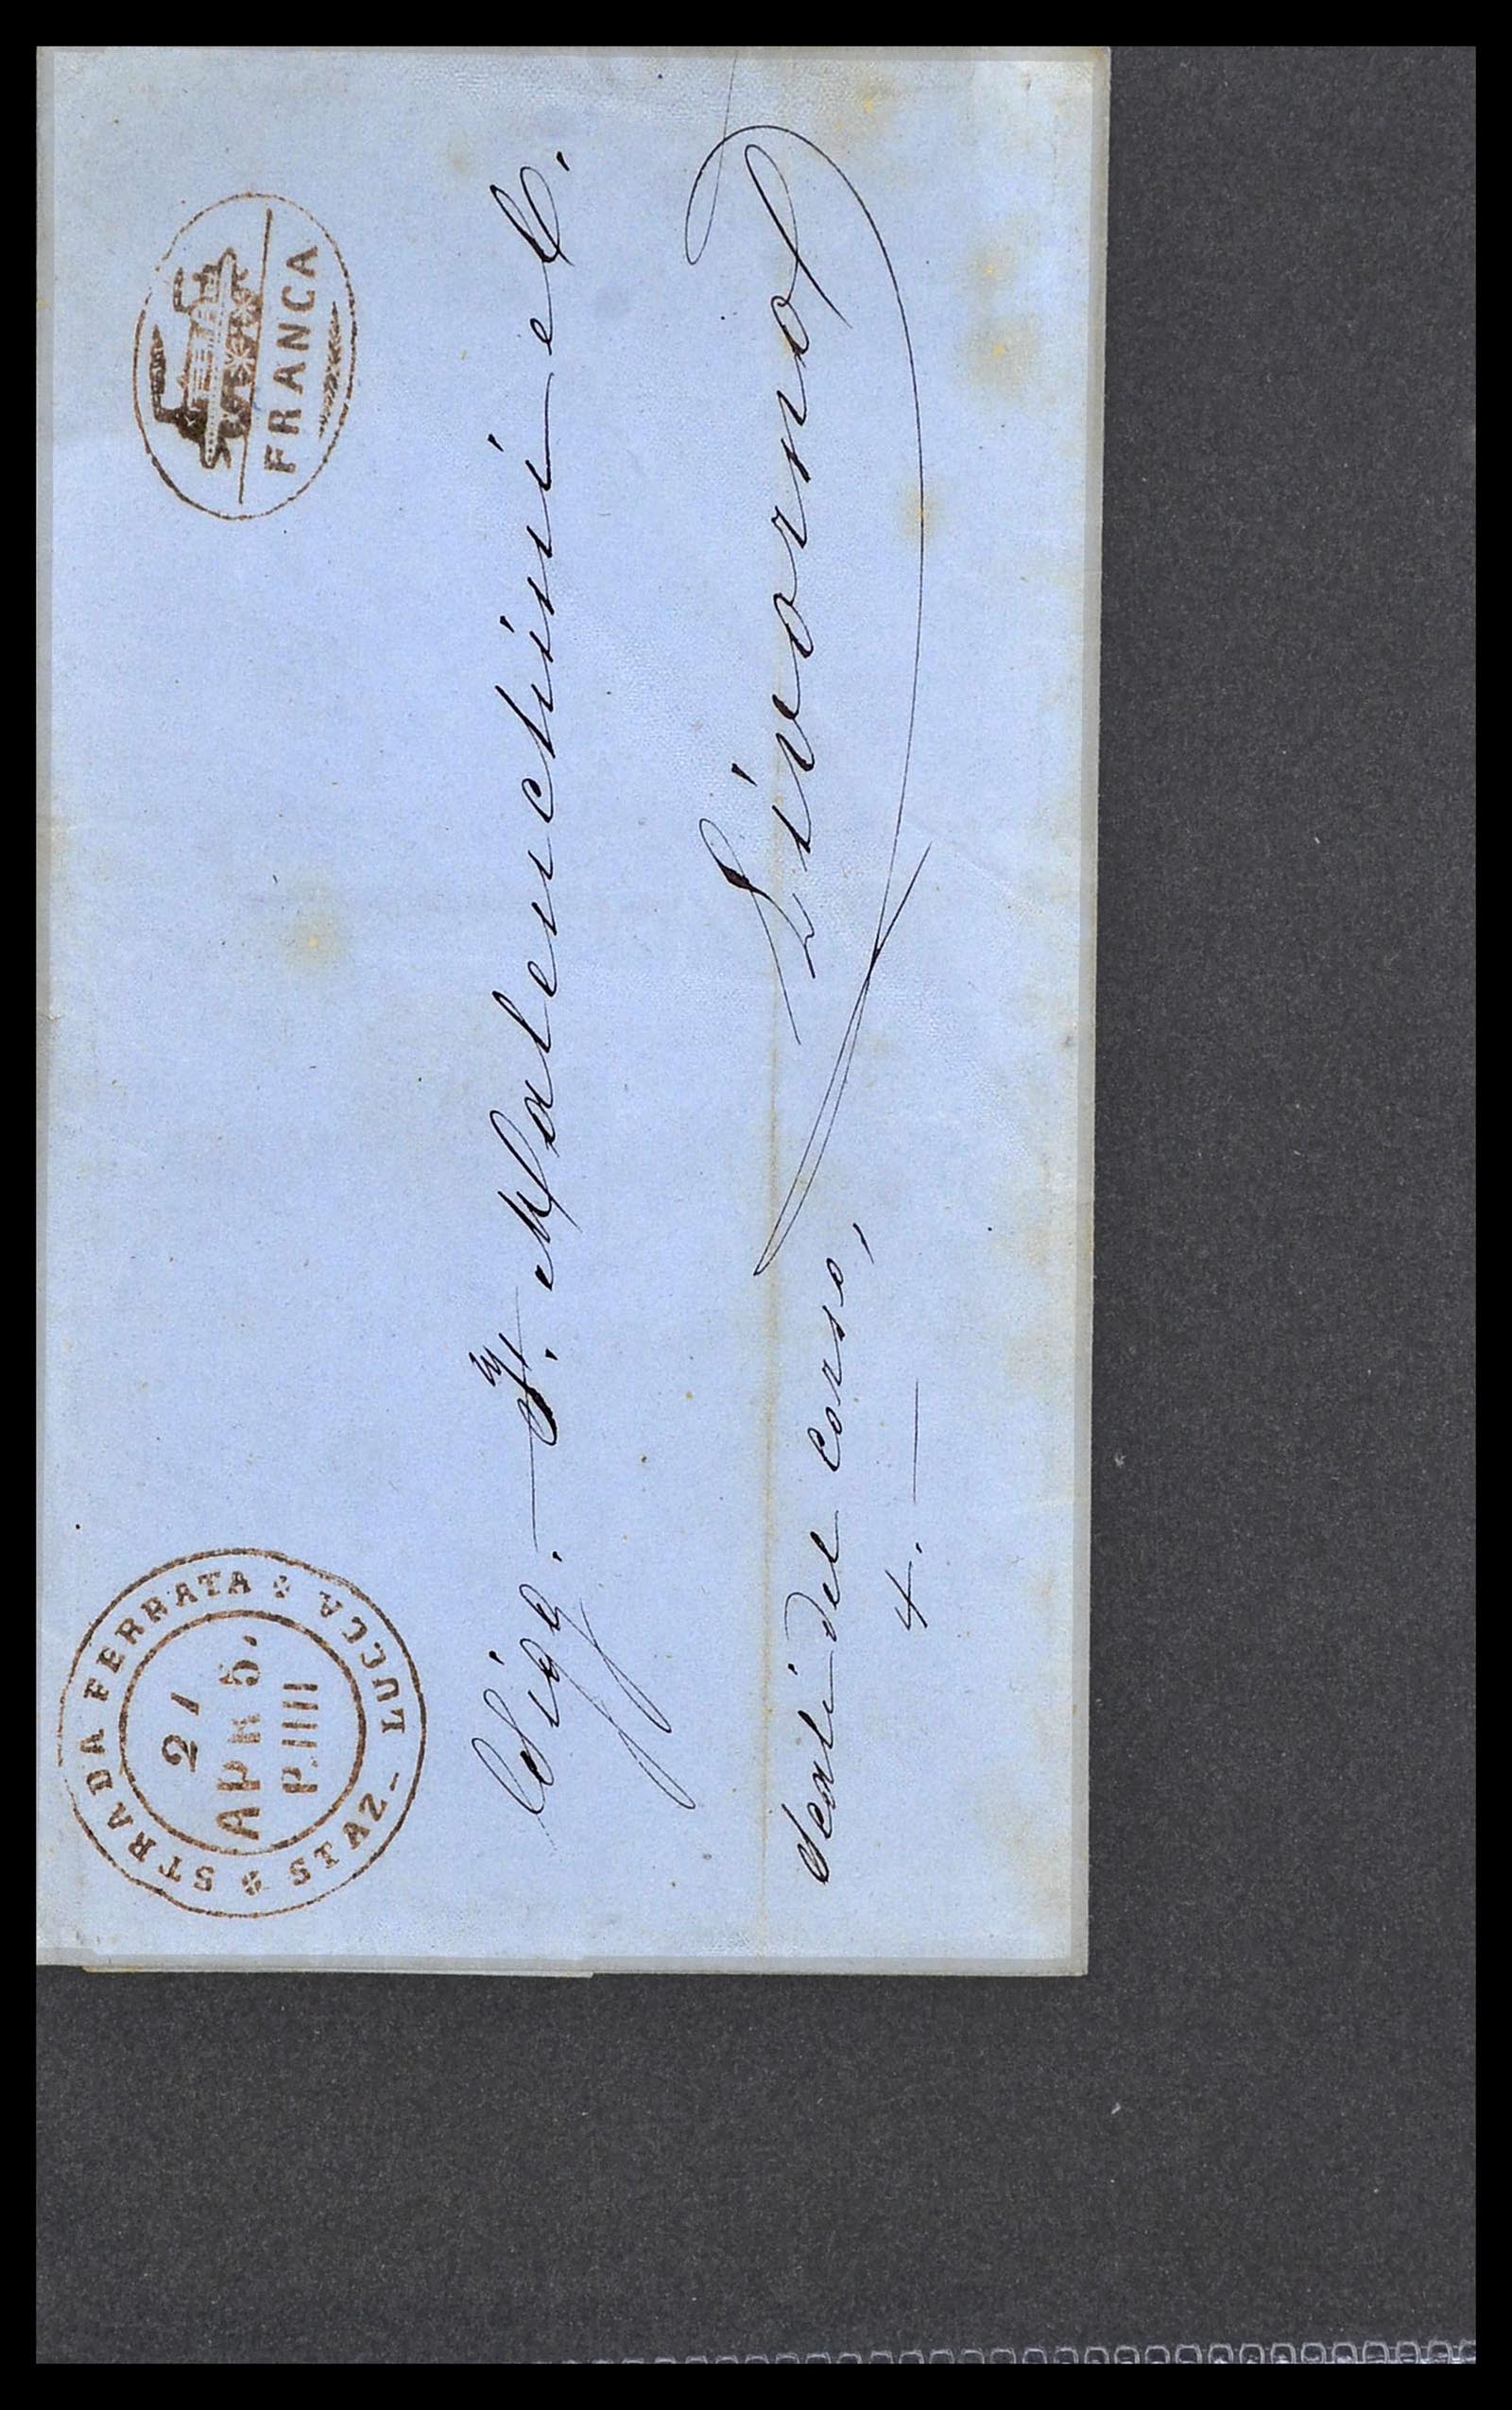 STRADA FERRATA
21
APR 5,
P. IIII
STAZ - LUCCA
FRANCA
Sigg. F. Malenchini e C.
Livorno
Scali del Corso,
4. —